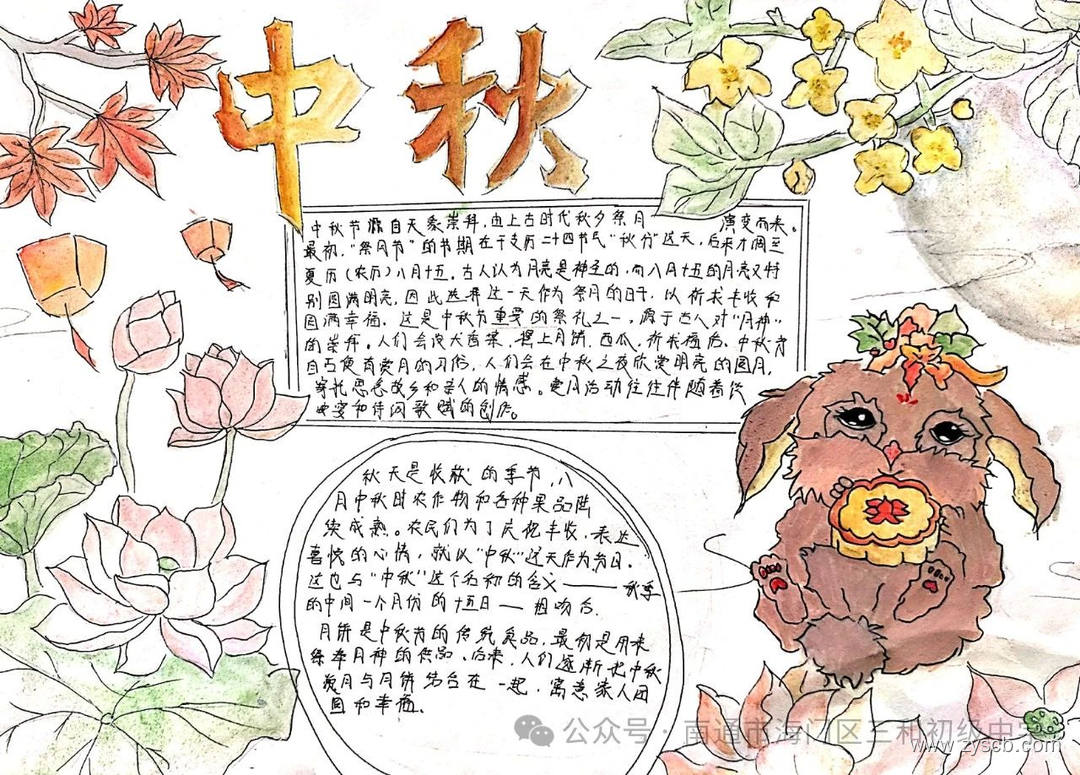 中秋
中秋节源自天象崇拜，由上古时代秋夕祭月 演变而来。
最初，“祭月节”的节期在干支历二十四节气“秋分”这天，后来才调至
夏历（农历）八月十五。古人认为月亮是神圣的，而八月十五的月亮又特
别圆满明亮，因此选择这一天作为祭月的日子，以祈求丰收和
圆满幸福。这是中秋节重要的祭礼之一，源于古人对“月神”
的崇拜。人们会设大香案，摆上月饼、西瓜，祈求福佑。中秋节
自古便有赏月的习俗，人们会在中秋之夜欣赏明亮的圆月，
寄托思念故乡和亲人的情感。赏月活动往往伴随着饮
和诗词歌赋的创作。
秋天是收获的季节，八
月中秋时农作物和各种果品陆
续成熟。农民们为了庆祝丰收，表达
喜悦的心情，就以“中秋”这天作为节日。
这也与“中秋”这个名称的含义——秋季
的中间一个月份的十五日—相吻合.
月饼是中秋节的传统食品，最初是用来
祭奉月神的供品、后来，人们逐渐把中秋
赏月与月饼结合在一起，寓意家人团
圆和幸福。
公众号·南通市海门区三和初级中学
www.zyscb.com